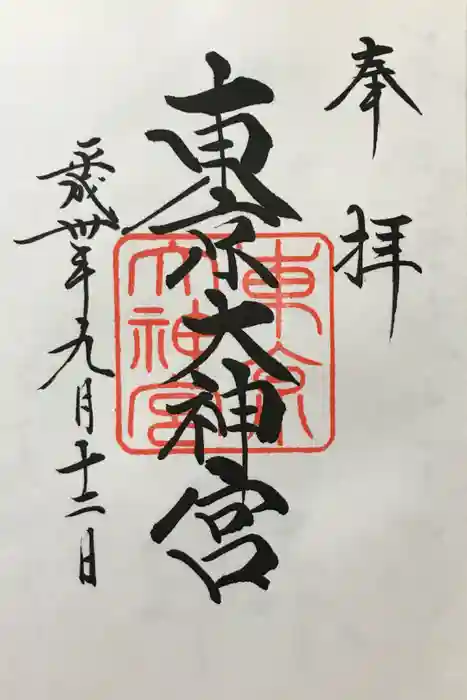 奉拝
東京大神宮
東京
大神宮
平成卅年九月十二日